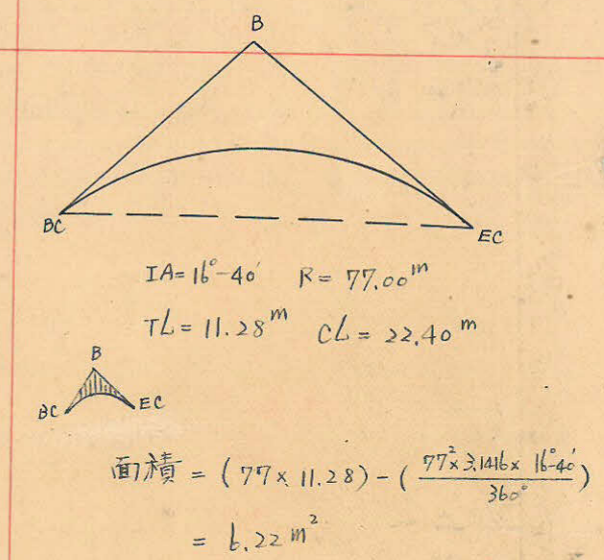 B
BC
EC
IA=16°-40' R= 77.00m
TL= 11.28m CL= 22.40m
B
BC EC
面積 = (77×11.28)-(77²×3.1416×16°-40'/360°)
= 6.22m²